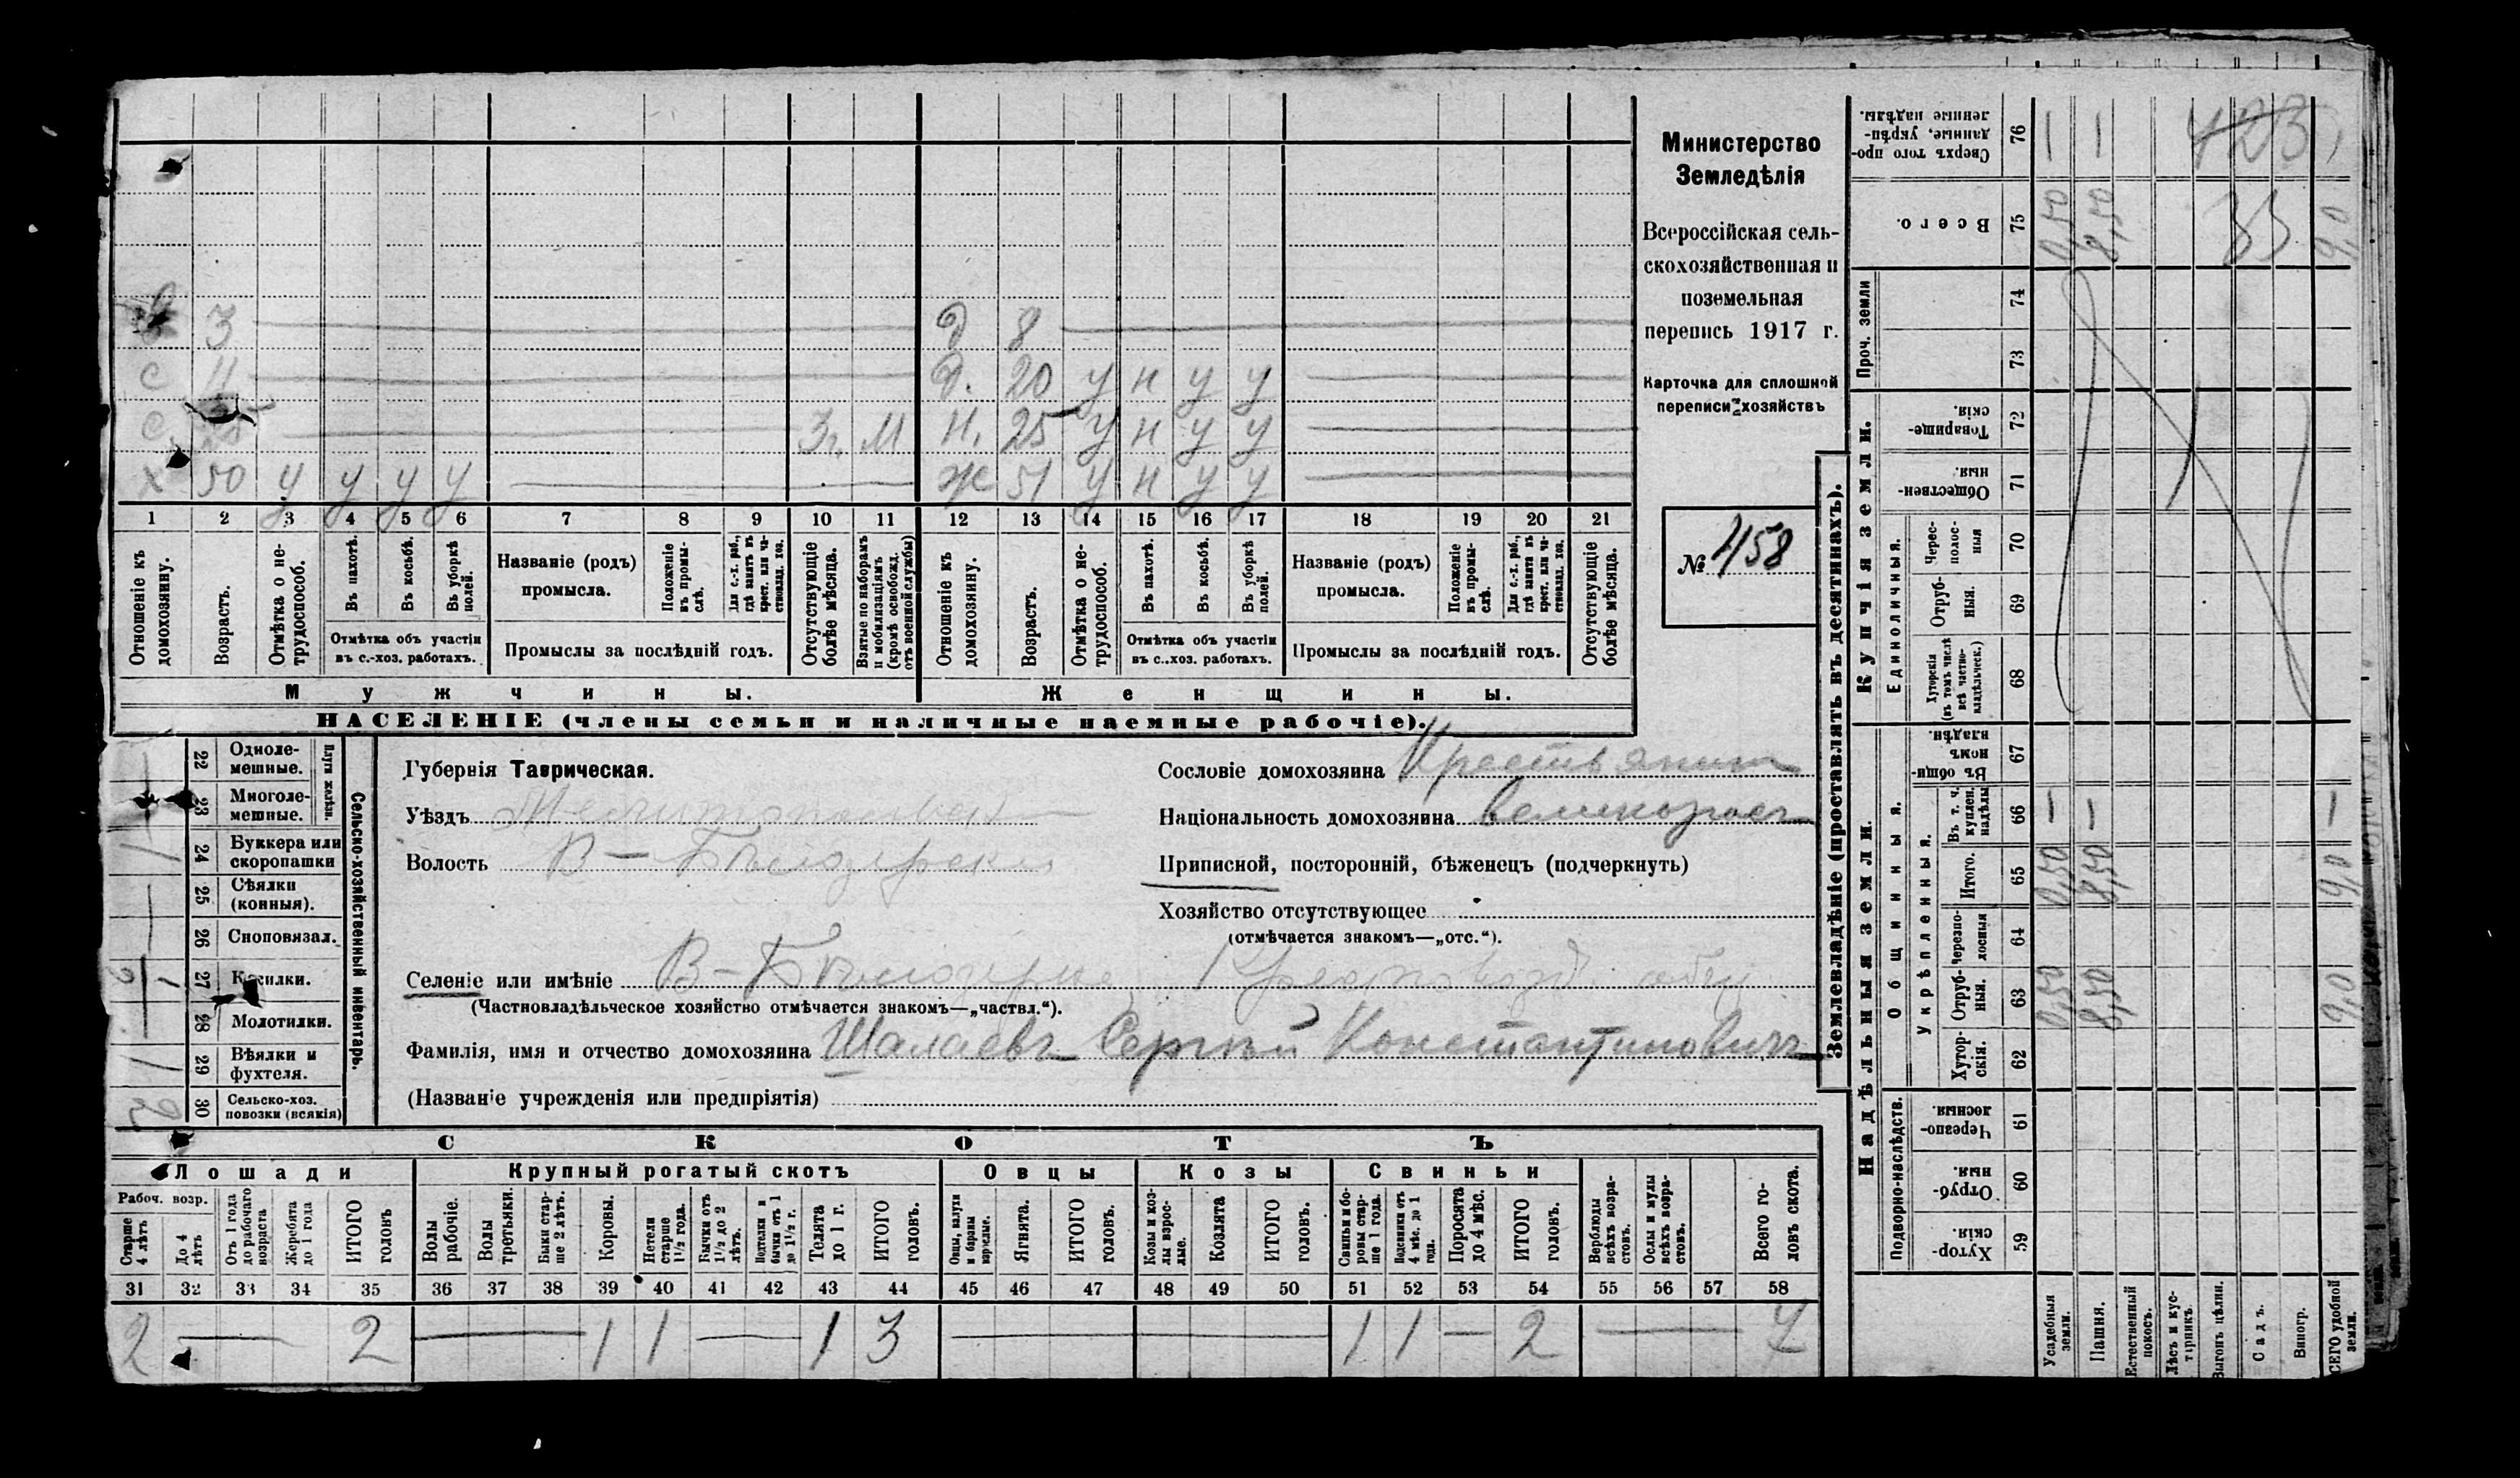 Министерство
Земледѣлія
Всероссійская сель-
скохозяйственная и
поземельная
перепись 1917 г.
Карточка для сплошной
переписи хозяйствъ
№ 458
3 Д 8
С 11 Д. 20 у н у у
С 3г. М Н. 25 у н у у
Х 50 у у у у Ж 51 у н у у
1 2 3 4 5 6 7 8 9 10 11 12 13 14 15 16 17 18 19 20 21
Отношеніе къ домохозяину.
Возрастъ.
Отмѣтка о не-трудоспособ.
Въ пахотѣ.
Въ косьбѣ.
Въ уборкѣ полей.
Отмѣтка объ участіи
въ с.-хоз. работахъ.
Названіе (родъ)
промысла.
Положеніе въ промы-слѣ.
Для с.-х. раб., гдѣ занятъ въ крест. или ча-стновлад. хоз.
Промыслы за послѣдній годъ.
Отсутствующіе болѣе мѣсяца.
Взятые по наборамъ и мобилизаціямъ (кромѣ освобожд. отъ военной службы)
Отношеніе къ домохозяину.
Возрастъ.
Отмѣтка о не-трудоспособ.
Въ пахотѣ.
Въ косьбѣ.
Въ уборкѣ полей.
Отмѣтка объ участіи
въ с.-хоз. работахъ.
Названіе (родъ)
промысла.
Положеніе въ промы-слѣ.
Для с.-х. раб., гдѣ занята въ крест. или ча-стновлад. хоз.
Промыслы за послѣдній годъ.
Отсутствующіе болѣе мѣсяца.
Мужчины. Женщины.
НАСЕЛЕНІЕ (члены семьи и наличные наемные рабочіе).
Сельско-хозяйственный инвентарь.
Плуги желѣзн.
22 Одноле-мешные.
23 Многоле-мешные.
24 Буккера или скоропашки 1
25 Сѣялки (конныя). —
26 Сноповязал. —
27 Косилки.
28 Молотилки. —
29 Вѣялки и фухтеля. 1
30 Сельско-хоз. повозки (всякія)
Губернія Таврическая.
Уѣздъ Мелитопольск
Волость В-Бѣлозерск
Сословіе домохозяина Крестьянин
Національность домохозяина великоросъ
Приписной, посторонній, бѣженецъ (подчеркнуть)
Хозяйство отсутствующее
(отмѣчается знакомъ—„отс.“).
Селеніе или имѣніе В-Бѣлозерка
(Частновладѣльческое хозяйство отмѣчается знакомъ—„частвл.“).
Фамилія, имя и отчество домохозяина Шалаевъ Сергѣй Константиновичъ
(Названіе учрежденія или предпріятія)
СКОТЪ
Лошади Крупный рогатый скотъ Овцы Козы Свиньи
Рабоч. возр.
Старше 4 лѣтъ
До 4 лѣтъ
Отъ 1 года до рабочаго возраста
Жеребята до 1 года
ИТОГО головъ
Волы рабочіе.
Волы третьяки.
Быки стар-ше 2 лѣтъ.
Коровы.
Нетели старше 1½ года.
Бычки отъ 1½ до 2 лѣтъ.
Подтелки и бычки отъ 1 до 1½ г.
Телята до 1 г.
ИТОГО головъ.
Овцы, валухи и бараны взрослые.
Ягнята.
ИТОГО головъ.
Козы и коз-лы взрос-лые.
Козлята
ИТОГО головъ.
Свиньи и бо-ровы стар-ше 1 года.
Подсвинки отъ 4 мѣс. до 1 года.
Поросята до 4 мѣс.
ИТОГО головъ.
Верблюды всѣхъ возра-стовъ.
Ослы и мулы всѣхъ возра-стовъ.
Всего го-ловъ скота.
31 32 33 34 35 36 37 38 39 40 41 42 43 44 45 46 47 48 49 50 51 52 53 54 55 56 57 58
2 — 2 — 1 1 — 1 3 — 1 1 — 2 — 7
Землевладѣніе (проставлять въ десятинахъ).
Надѣльныя земли. Купчія земли.
Подворно-наслѣдств.
Общинныя.
Укрѣпленныя.
Единоличныя.
Проч. земли
59 Хутор-скія.
60 Отруб-ныя.
61 Черезпо-лосныя.
62 Хутор-скія.
63 Отруб-ныя. 0,50 8,50 9,0
64 Черезпо-лосныя
65 Итого. 0,50 8,50 9,0
66 Въ т. ч. куплен. надѣлы — — —
67 Въ общин-номъ владѣн.
68 Хуторскія (въ томъ числѣ всѣ частно-владѣльческ.)
69 Отруб-ныя.
70 Черес-полос-ныя
71 Обществен-ныя.
72 Товарище-скія.
73
74
75 Всего. 0,50 8,50 9,0
76 Сверхъ того про-данные, укрѣп-ленные надѣлы. — —
423
Усадебныя земли.
Пашня.
Естественный покосъ.
Лѣсъ и кус-тарникъ.
Выгонъ цѣлин.
Садъ.
Виногр.
ВСЕГО удобной земли.